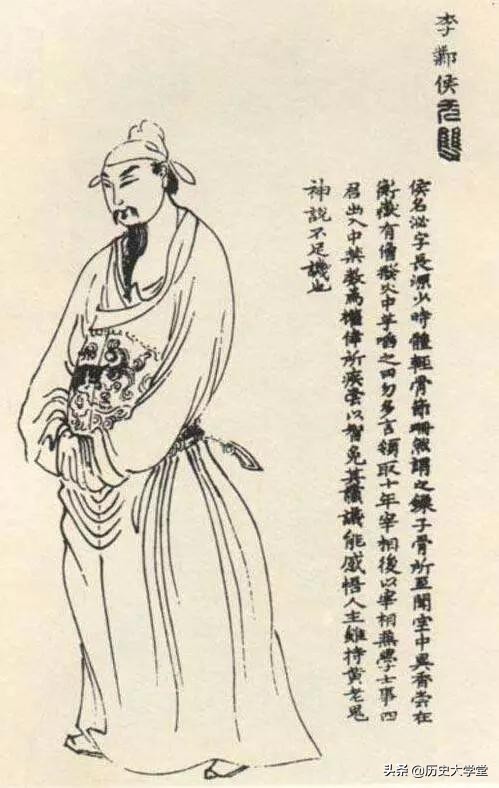 李鄴侯无雙
侯名泌字長源少時體輕骨節珊然謂之鎖子骨所至聞空中異香嘗在
衡嶽有僧撥火中芋啗之曰勿多言領取十年宰相後以宰相兼學士事四
君出入中禁數為權倖所疾嘗以智免其讜議能感悟人主雖持黃老鬼
神說不足譏也
头条 @历史大学堂